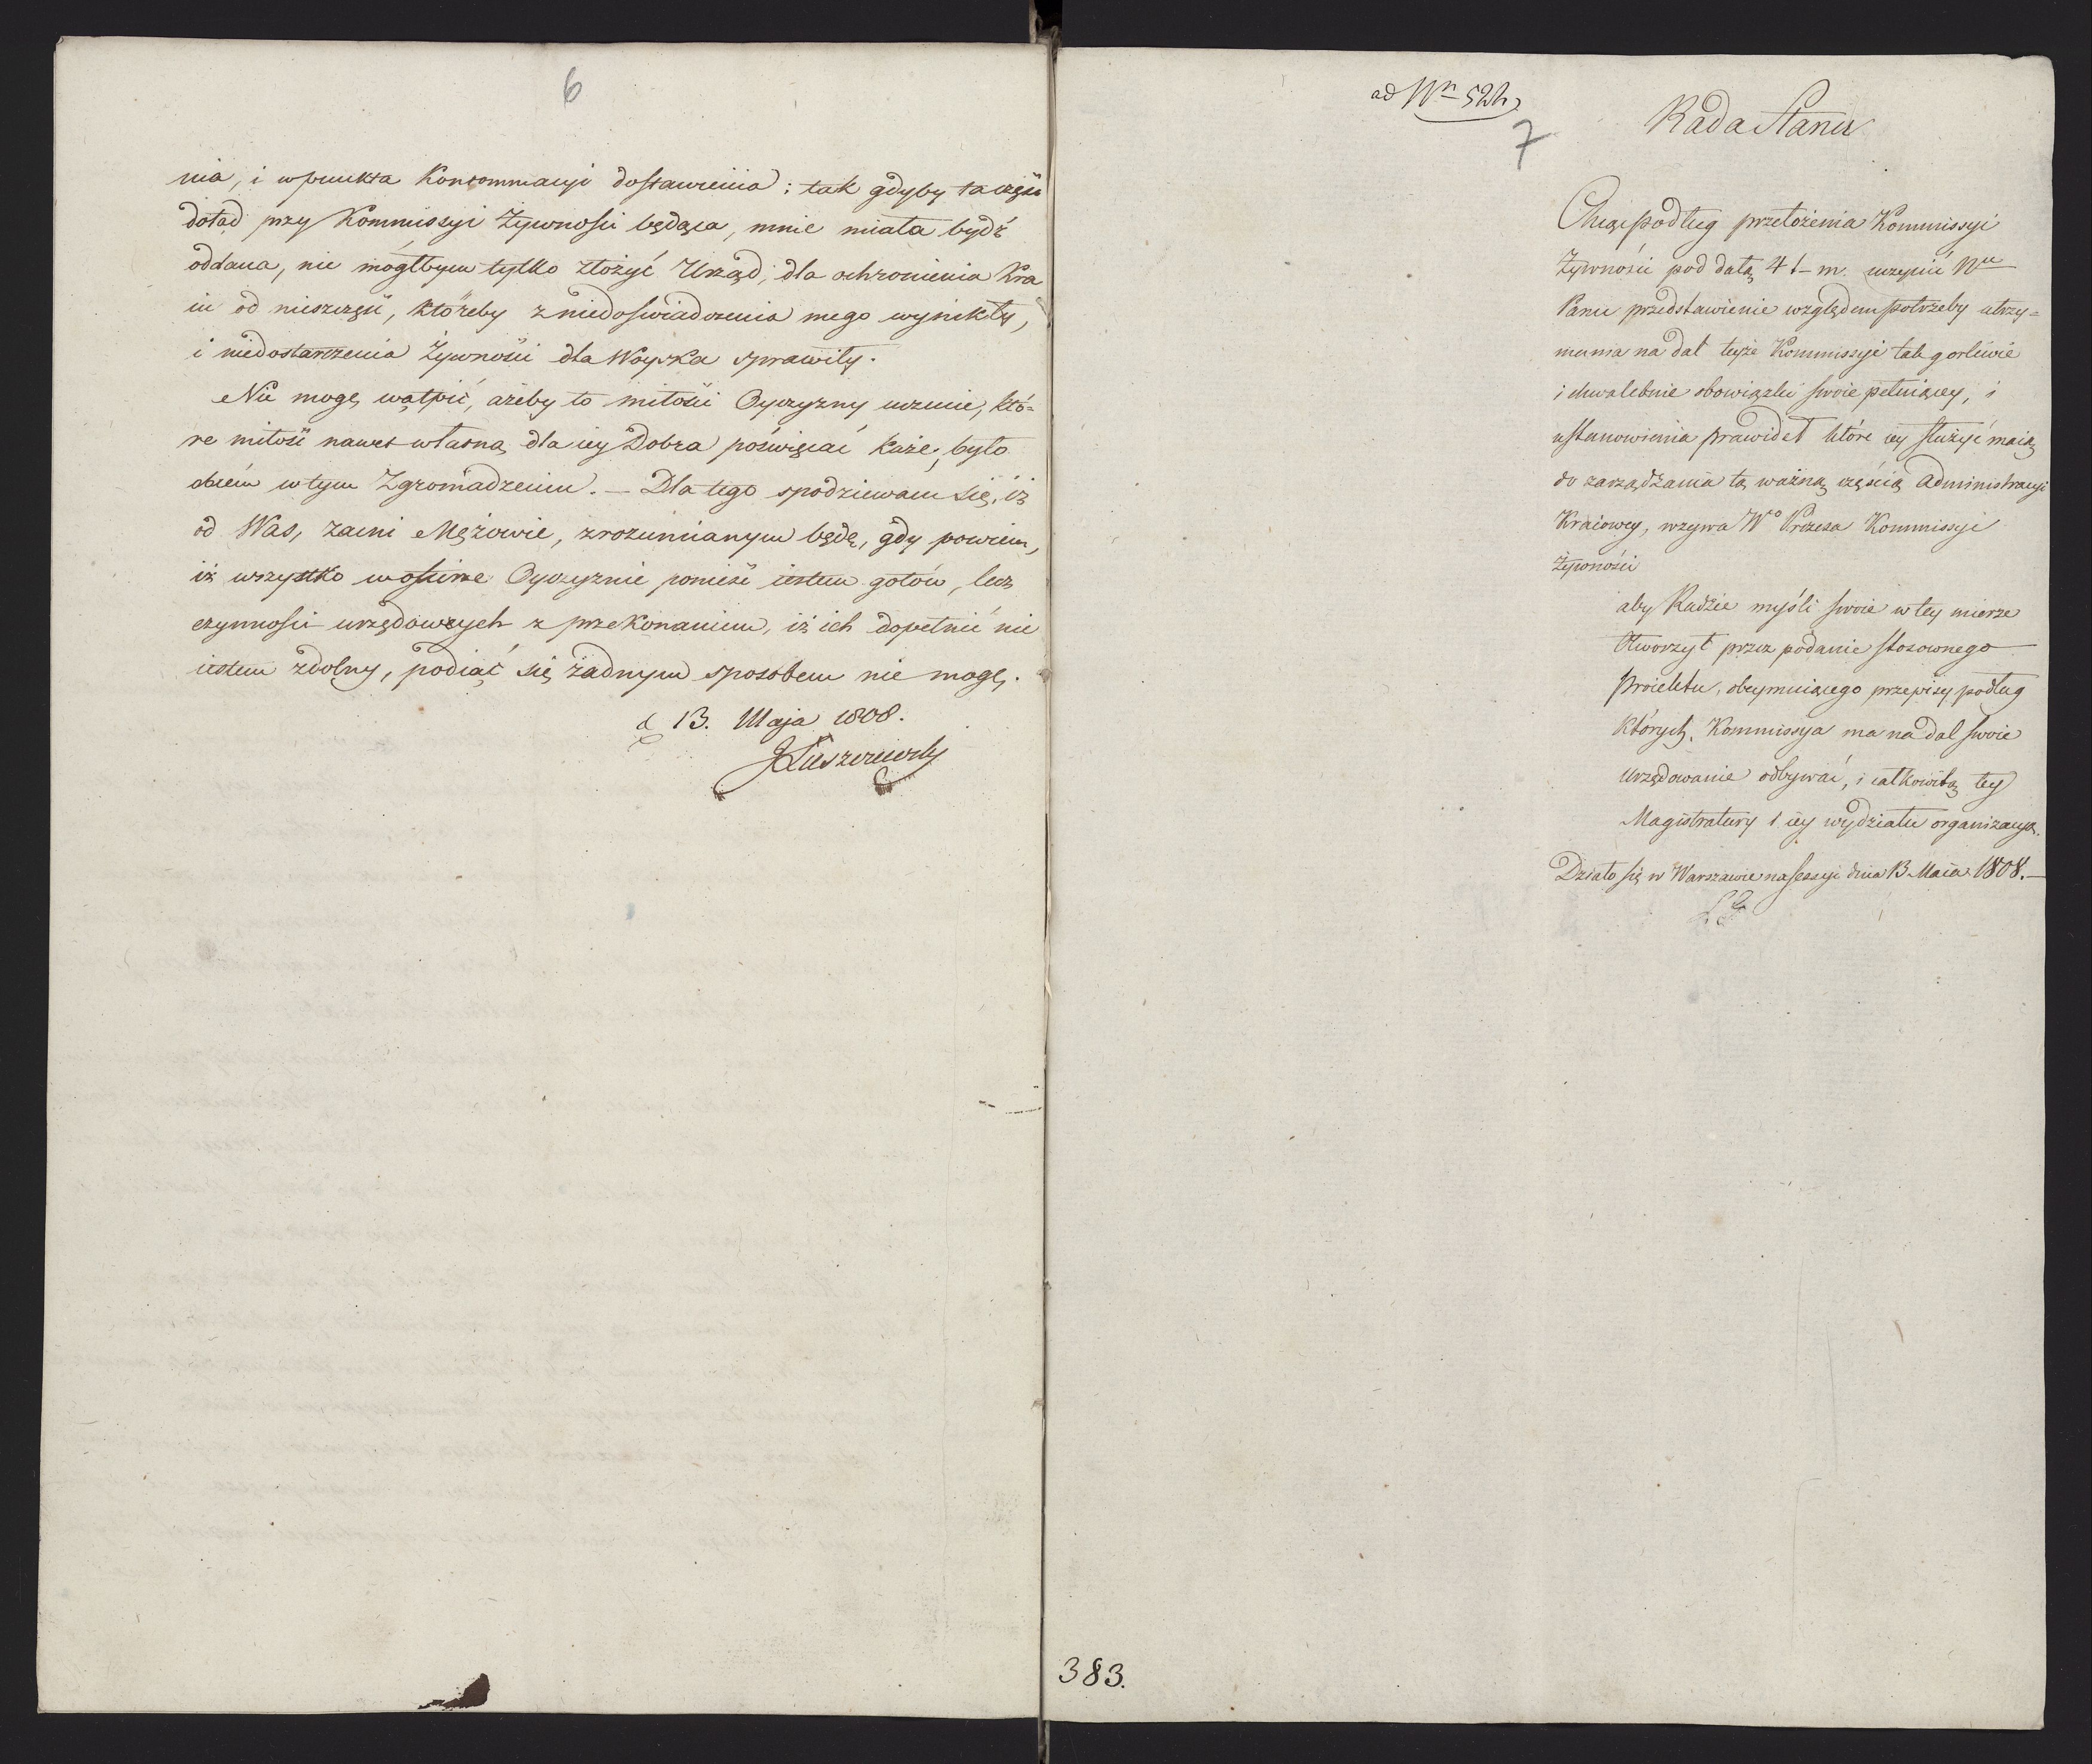 6
nia, i wpunkta Konsommacyi dostawienia; tak gdyby ta część
dotąd przy Kommissyi Żywnosci będąca, mnie miała bydź
oddana, nie mógłbym tylko złożyć Urząd, dla ochronienia Kra
iu od nieszczęść, któreby z niedoswiadczenia mego wynikły,
i niedostarczenia Żywności dla Woyska sprawiły.
Nie mogę wątpić, ażeby to miłości Oyczyzny uczucie, któ=
re miłość nawet własną dla iey Dobra poświęcać każe, było
obcém w tym Zgromadzeniu. — Dla tego spodziewam się, iż
od Was, zacni Mężowie, zrozumianym będę, gdy powiem,
iż wszystko w ofierze Oyczyznie ponieść iestem gotów, lecz
czynności urzędowych z przekonaniem, iż ich dopełnić nie
iestem zdolny, podiąć się żadnym sposobem nie mogę.
d 13. Maja 1808.
JŁuszczewsky
ad Nrn 524
7
Rada Stanu
Chcąc podług przełożenia Kommissyi
Żywności pod datą 4 t. m. uczynić Nu
Panu przedstawienie względem potrzeby utrzy=
mania na dal teyże Kommissyi tak gorliwie
i chwalebnie obowiązki swoie pełniącey, i
ustanowienia prawideł które iey służyć maią
do zarządzania tą ważną częścią Administracyi
Kraiowey, wzywa Wo Prezesa Kommissyi
Żywności
aby Radzie myśli swoie w tey mierze
otworzył przez podanie stosownego
Proiektu, obeymuiącego przepisy podług
których Kommissya ma na dal swoie
Urzędowanie odbywać, i całkowitą tey
Magistratury i iey wydziału organizacyą.
Działo się w Warszawie na Sessyi dnia 13 Maia 1808. —
383.